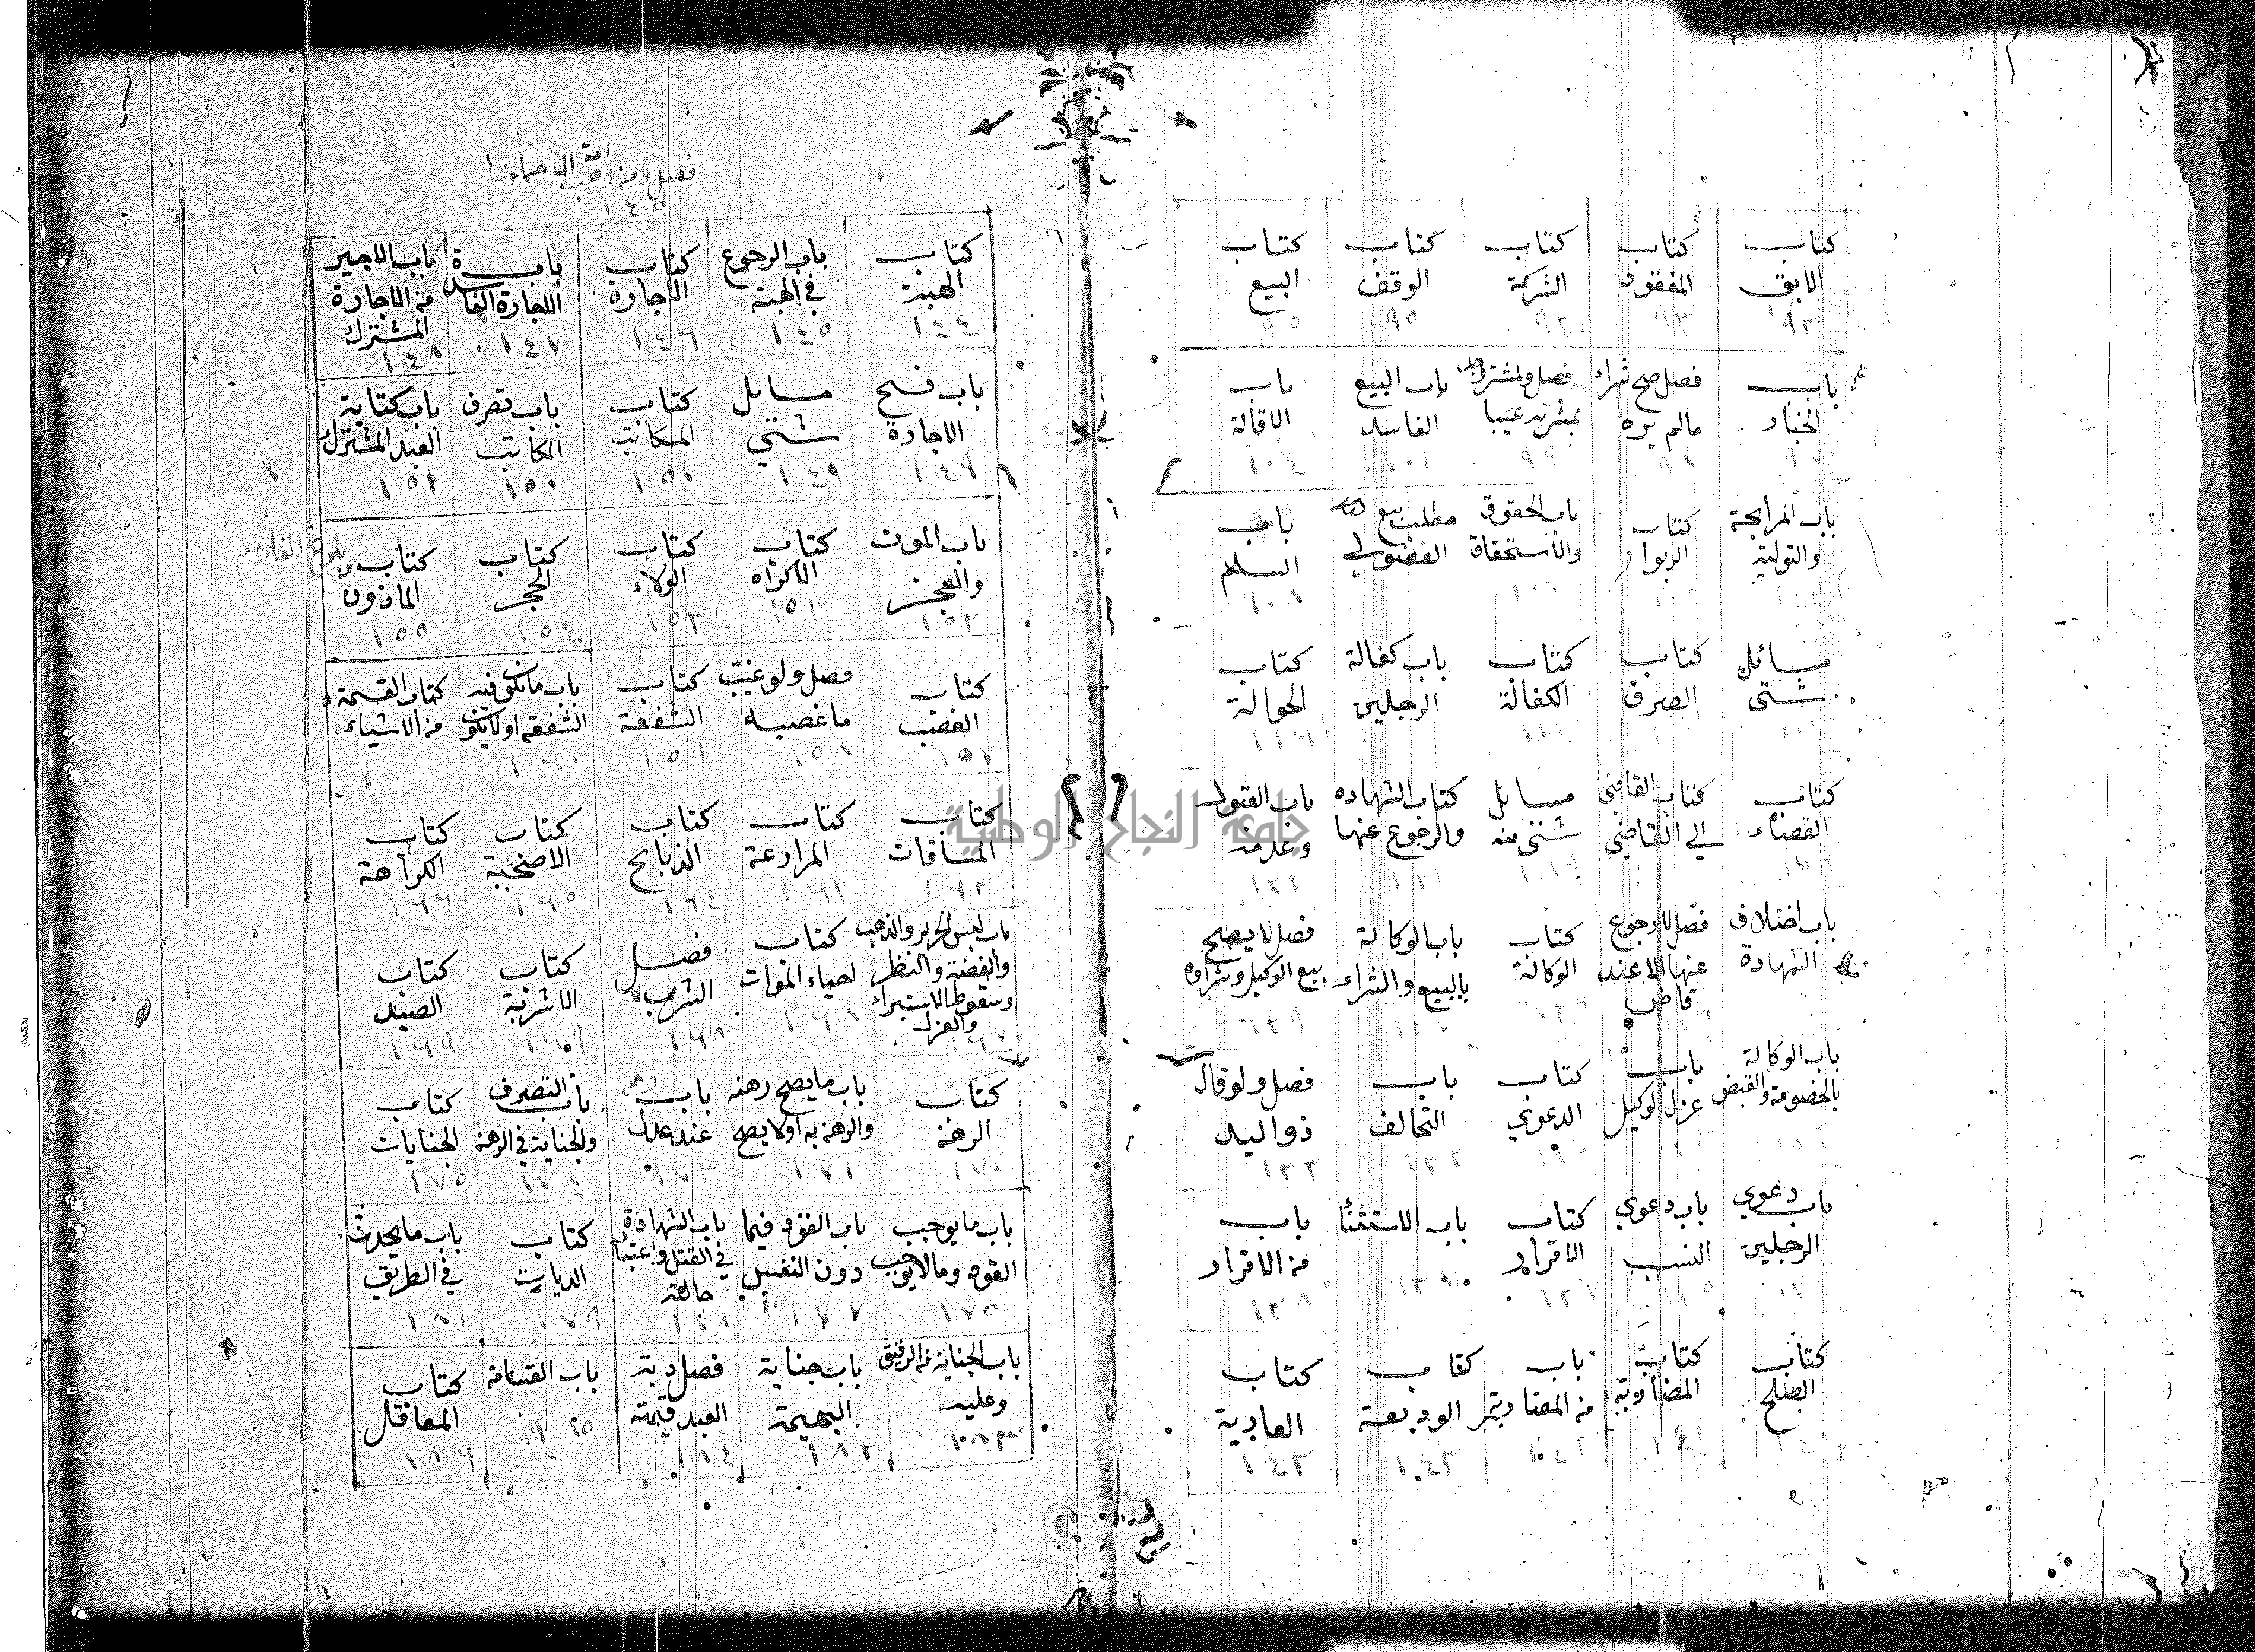 كتاب الابق ٩٣
كتاب المفقود ٩٣
كتاب الشركة ٩٣
كتاب الوقف ٩٥
كتاب البيع ٩٥
باب الخيار ٩٧
فصل صح شراء مالم يره ٩٨
فصل ولمشتر وجد بمشريه عيبا ٩٩
باب البيع الفاسد ١٠١
باب الاقالة ١٠٤
باب المرابحة والتولية
كتاب الربوا
باب الحقوق والاستحقاق
مطلب بيع الفضولي
باب السلم ١٠٨
مسائل شتى
كتاب الصرف
كتاب الكفالة ١١١
باب كفالة الرجلين
كتاب الحوالة ١١٦
كتاب القضاء
كتاب القاضي الي القاضي
مسايل شتى منه ١١٩
كتاب الشهاده والرجوع عنها ١٢١
باب القبول وعدمه ١٢٢
باب اختلاف الشهادة
فصل لا رجوع عنها الا عند قاض
كتاب الوكالة ١٢٦
باب الوكالة بالبيع والشراء
فصل لا يصح بيع الوكيل وشراوه ١٢٩
باب الوكالة بالخصومة والقبض
باب عزل الوكيل
كتاب الدعوي
باب التحالف ١٣٢
فصل ولو قال ذو اليد ١٣٣
باب دعوي الرجلين
باب دعوي النسب
كتاب الاقرار
باب الاستثنا
باب من الاقرار ١٣٨
كتاب الصلح
كتاب المضاربة ١٤١
باب من المضاربة
كتاب الوديعة ١٤٣
كتاب العارية ١٤٣
جامعة النجاح الوطنية
فصل ومن وهب امة الا حملها
١٤٥
كتاب الهبة ١٤٤
باب الرجوع في الهبة ١٤٥
كتاب الاجارة ١٤٦
باب الاجارة الفاسدة ١٤٧
باب الاجير من الاجارة المشترك ١٤٨
باب فسخ الاجارة ١٤٩
مسايل شتي ١٤٩
كتاب المكاتب ١٥٠
باب تصرف المكاتب ١٥٠
باب كتابة العبد المشترك ١٥٢
باب الموت والعجز ١٥٢
كتاب الاكراه ١٥٣
كتاب الولاء ١٥٣
كتاب الحجر ١٥٤
وبلوغ الغلام
كتاب الماذون ١٥٥
كتاب الغصب
فصل ولو غيّب ما غصبه ١٥٨
كتاب الشفعة ١٥٩
باب ما تكون فيه الشفعة او لا يكون ١٦٠
كتاب القسمة من الاشياء
كتاب المساقات ١٦٢
كتاب المزارعة ١٦٣
كتاب الذبايح ١٦٤
كتاب الاضحية ١٦٥
كتاب الكراهة ١٦٦
باب لبس الحرير والذهب والفضة والنظر وسقوط الاستبراء والعزل ١٦٧
كتاب احياء الموات ١٦٨
فصل الشرب ١٦٨
كتاب الاشربة ١٦٩
كتاب الصيد ١٦٩
كتاب الرهن ١٧٠
باب ما يصح رهنه والرهن به او لا يصح ١٧١
باب عند عدل ١٧٣
باب التصرف والجناية في الرهن ١٧٤
كتاب الجنايات ١٧٥
باب ما يوجب القود وما لا يوجب ١٧٥
باب القود فيما دون النفس ١٧٧
باب الشهادة في القتل واعتبار حالته ١٧٨
كتاب الديات ١٧٩
باب ما يحدث في الطريق ١٨١
باب الجناية من الرقيق وعليه ١٨٣
باب جناية البهيمة ١٨٢
فصل دية العبد قيمته ١٨٤
باب القسامة ١٨٥
كتاب المعاقل ١٨٦